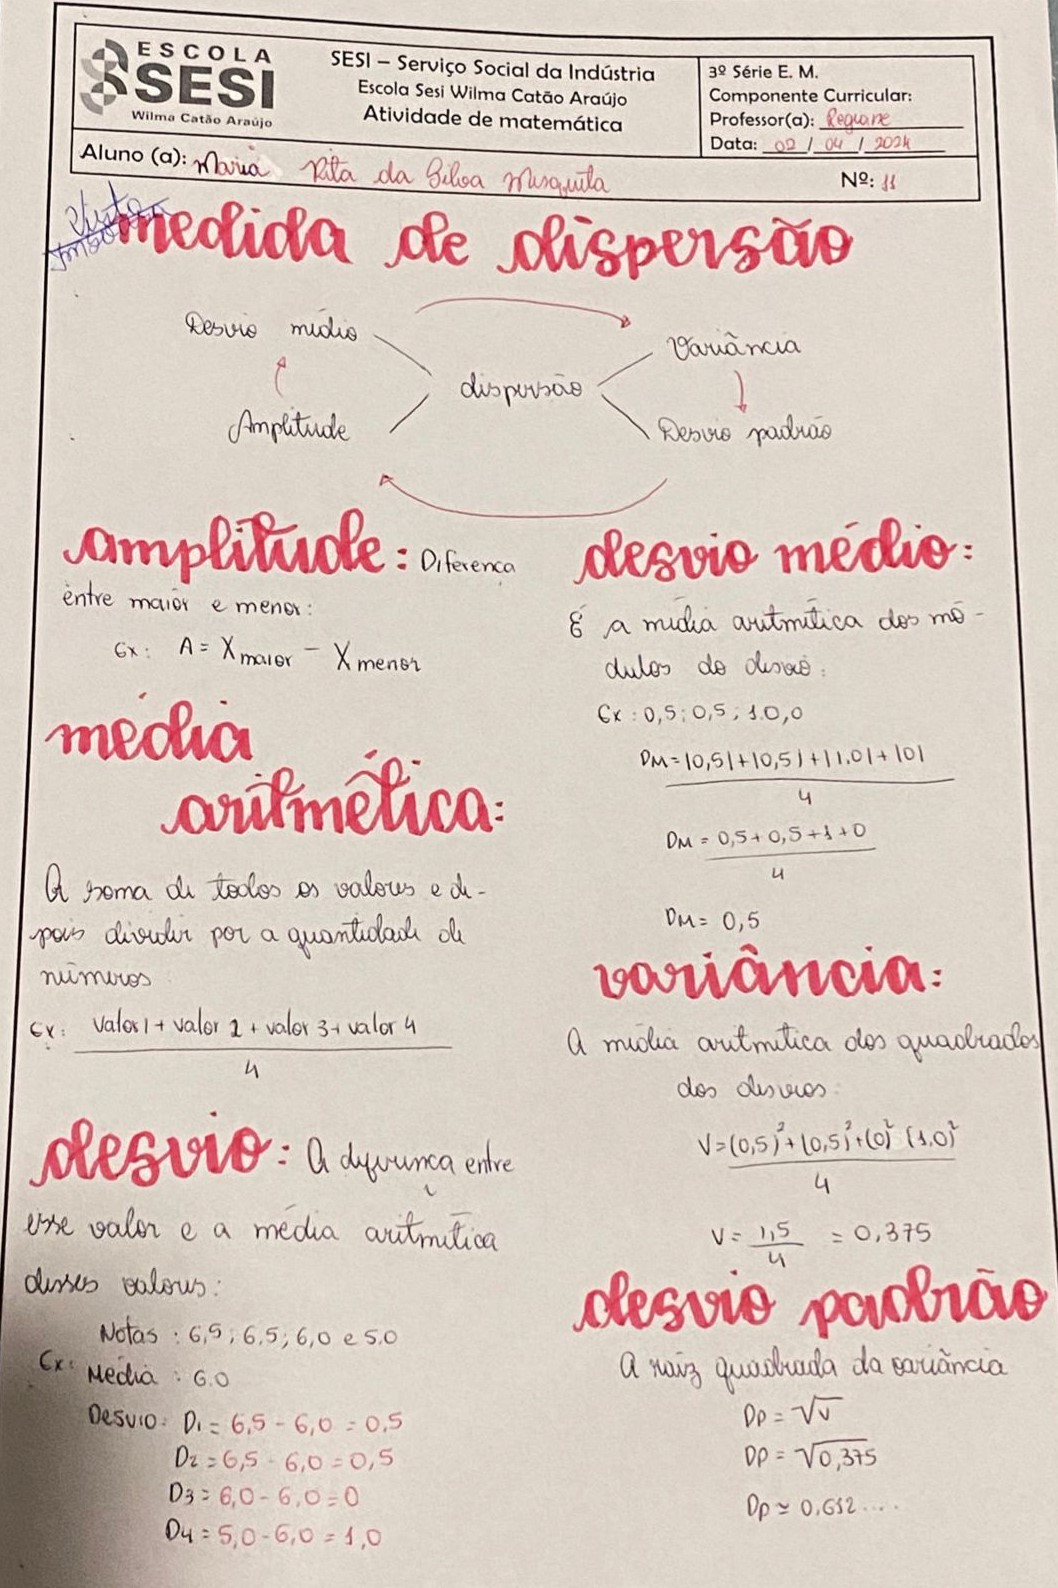 ESCOLA
SESI
Wilma Catão Araújo
SESI – Serviço Social da Indústria
Escola Sesi Wilma Catão Araújo
Atividade de matemática
3º Série E. M.
Componente Curricular:
Professor(a): Regiane
Data: 02 / 04 / 2024
Aluno (a): Maria Rita da Silva Mesquita
Nº: 11
Visto
medida de dispersão
Desvio médio
Variância
dispersão
Amplitude
Desvio padrão
amplitude: Diferença
entre maior e menor:
Ex: A = X maior - X menor
média
aritmética:
A soma de todos os valores e de-
pois dividir por a quantidade de
números
Ex: valor 1 + valor 2 + valor 3 + valor 4
4
desvio: A diferença entre
esse valor e a média aritmética
desses valores:
Notas : 6,5 ; 6,5 ; 6,0 e 5,0
Ex:
Média : 6.0
Desvio: D1 = 6,5 - 6,0 = 0,5
D2 = 6,5 - 6,0 = 0,5
D3 = 6,0 - 6,0 = 0
D4 = 5,0 - 6,0 = 1,0
desvio médio:
É a média aritmética dos mó-
dulos do desvio:
Ex : 0,5 ; 0,5 ; 1.0,0
DM = |0,5| + |0,5| + |1,0| + |0|
4
DM = 0,5 + 0,5 + 1 + 0
4
DM = 0,5
variância:
A média aritmética dos quadrados
dos desvios:
V = (0,5)² + (0,5)² + (0)² (1,0)²
4
V = 1,5 = 0,375
4
desvio padrão
A raiz quadrada da variância
Dp = √V
Dp = √0,375
Dp ≃ 0,612....